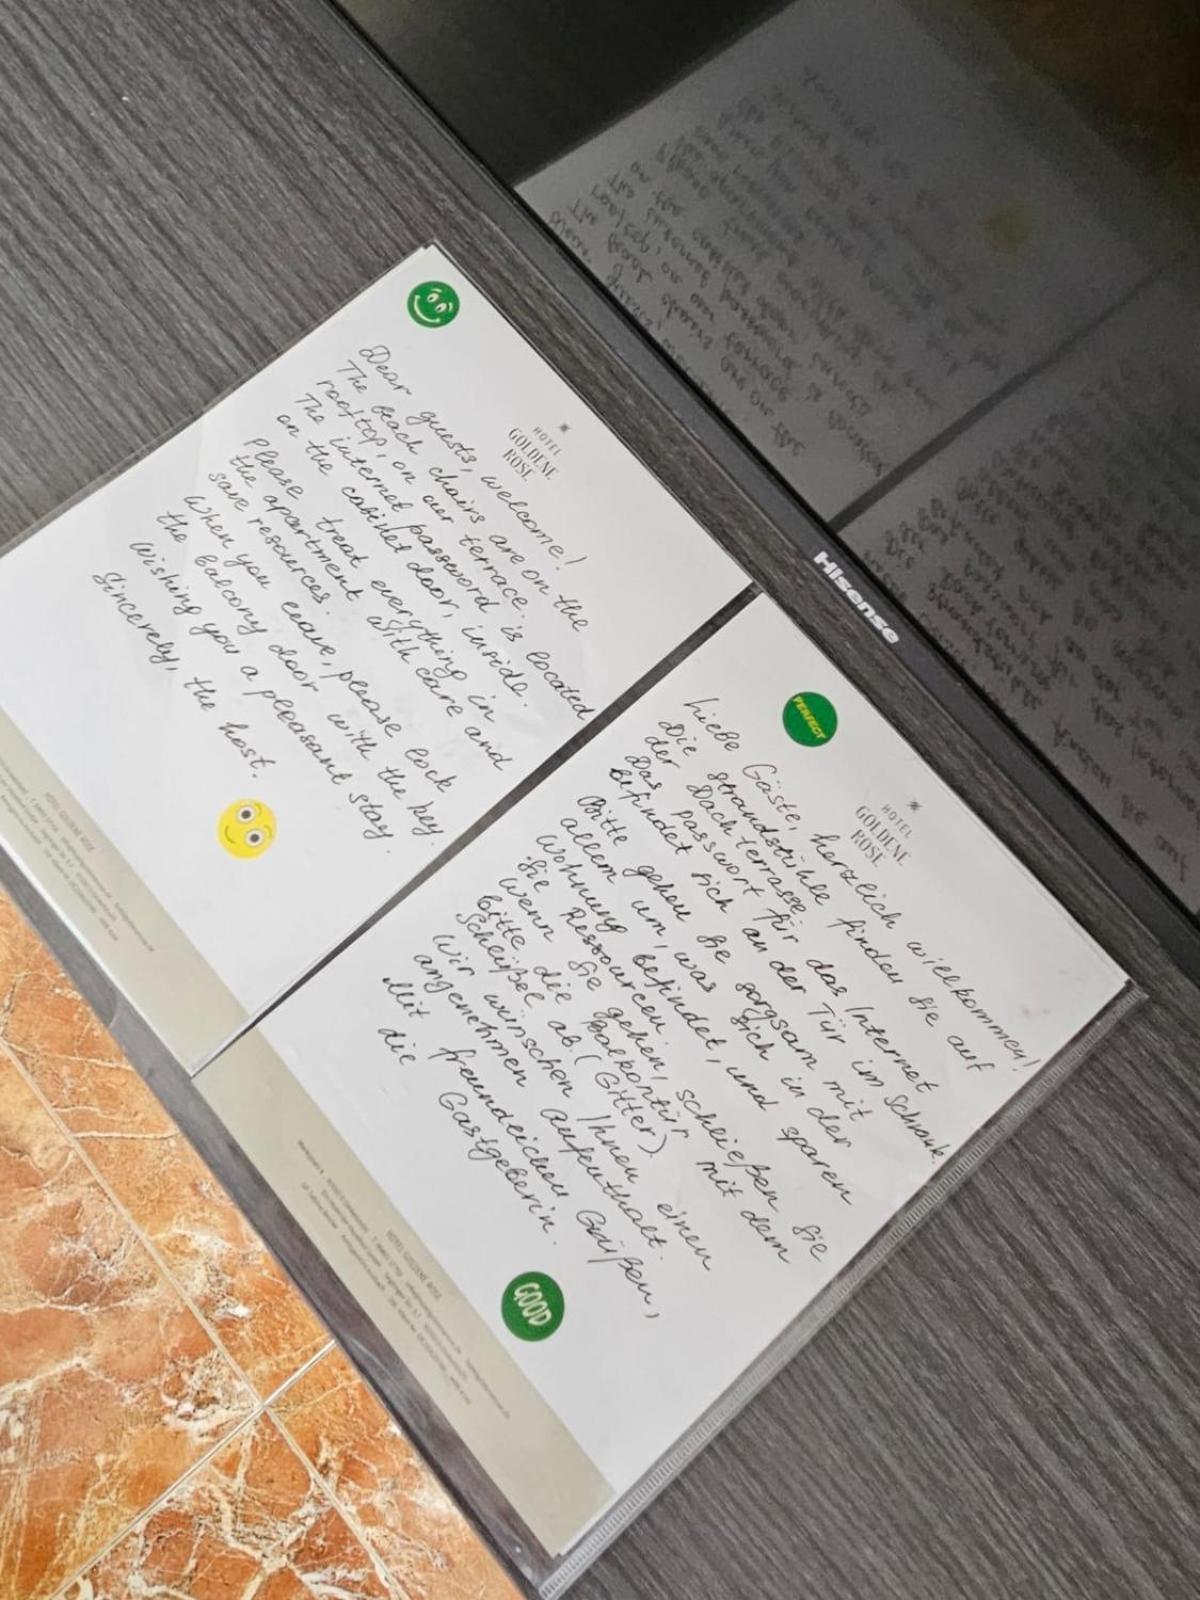 HOTEL
GOLDENE
ROSE
Dear guests, welcome!
The beach chairs are on the
rooftop, on our terrace.
The internet password is located
on the cabinet door, inside.
Please treat everything in
the apartment with care and
save resources.
When you leave, please lock
the balcony door with the key.
Wishing you a pleasant stay.
Sincerely, the host.
HOTEL GOLDENE ROSE
Hisense
PERFECT
HOTEL
GOLDENE
ROSE
Liebe Gäste, herzlich willkommen!
Die Strandstühle finden Sie auf
der Dachterrasse.
Das Passwort für das Internet
befindet sich an der Tür im Schrank.
Bitte gehen Sie sorgsam mit
allem um, was sich in der
Wohnung befindet, und sparen
Sie Ressourcen.
Wenn Sie gehen, schließen Sie
bitte die Balkontür mit dem
Scheißel ab. (Gitter).
Wir wünschen Ihnen einen
angenehmen Aufenthalt.
Mit freundeichen Grüßen,
die Gastgeberin.
GOOD
HOTEL GOLDENE ROSE